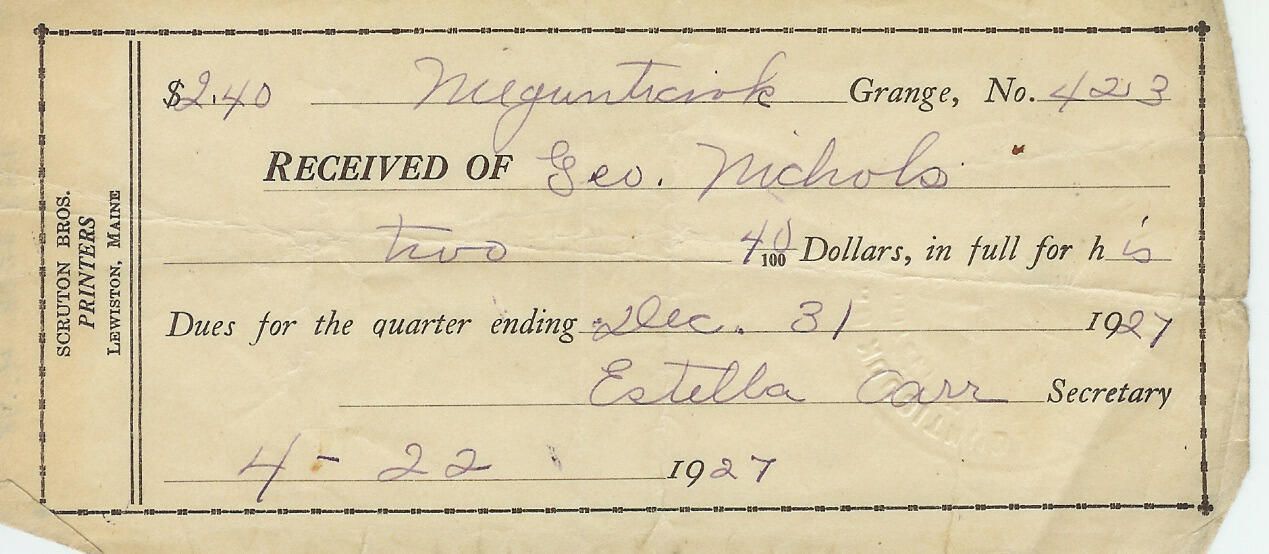 SCRUTON BROS.
PRINTERS
LEWISTON, MAINE
$2.40 Megunticook Grange, No. 423
RECEIVED OF Geo. Nichols
two 40/100 Dollars, in full for his
Dues for the quarter ending Dec. 31 1927
Estella Carr Secretary
4-22 1927